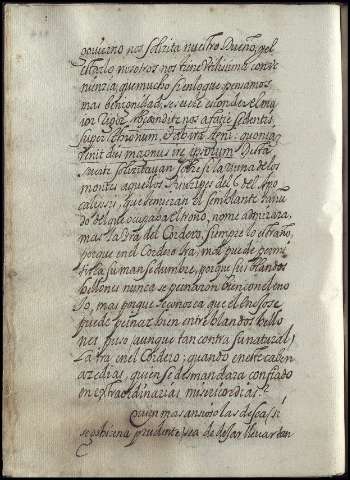 govierno nos solizita nuestro Dueño, y el
estarlo nosotros nos tiene utilissima conve
nienzia; que mucho si en lo que pensamos
mas benignidad, se suele esconder el ma
ior rigor. Abscondite nos a facie sedentis
super thronum, et ab ira Agni: quoniam
venit dies magnus iræ ipsorum. De esta
suerte solizitavan sobre si la ruina de los
montes aquellos Prinzipes del 6 del Apo
calipsi, que temieran el semblante sañu
do del que ocupava el trono, no me admirara,
mas la Ira del Cordero, siempre lo estraño,
porque en el Cordero Ira, mal puede permi
tirla su mansedumbre, porque sus blandos
bellones nunca se peinaron bien con el eno
jo, mas porque se conozca que el enojo se
puede peinar bien entre blandos bello
nes, puso, aunque tan contra su natural,
la Ira en el Cordero; quando en este caben
azedias, quien se desmandara confiado
en extraordinarias misericordias?
Quien mas ansioso las desea, si
se govierna prudente, sea de dejar llevar tan